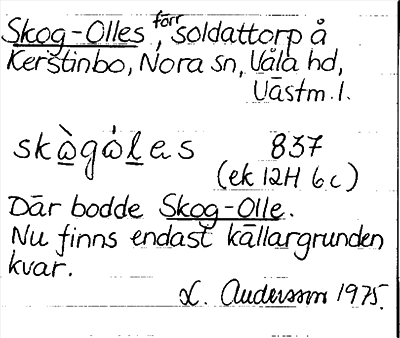 Skog-Olles, förr soldattorp å
Kerstinbo, Nora sn, Våla hd,
Västm. l.
skɷ̀gɷ́les 837
(ek 12H 6c)
Där bodde Skog-Olle.
Nu finns endast källargrunden
kvar.
L. Andersson 1975.